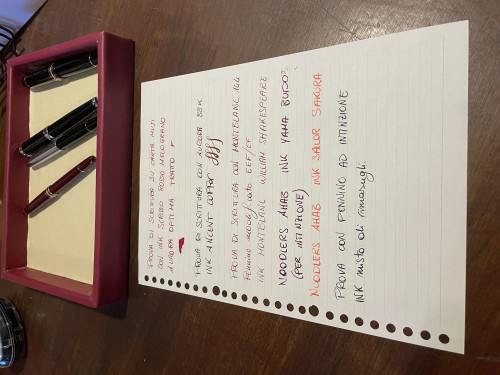 PROVA DI SCRITTURA SU CARTA MUJI
CON INK SCRIBO ROSSO MELOGRANO
AURORA OPTIMA TRATTO F
PROVA DI SCRITTURA CON AURORA 88K
INK ANCIENT COPPER
PROVA DI SCRITTURA CON MONTBLANC 146
Pennino EEF/EF
INK MONTBLANC WILLIAM SHAKESPEARE
NOODLERS AHAB INK YAMA BUDO
(PER INTINZIONE)
NOODLERS AHAB INK SAILOR SAKURA
PROVA CON PENNINO AD INTINZIONE
INK misto di rimasugli.